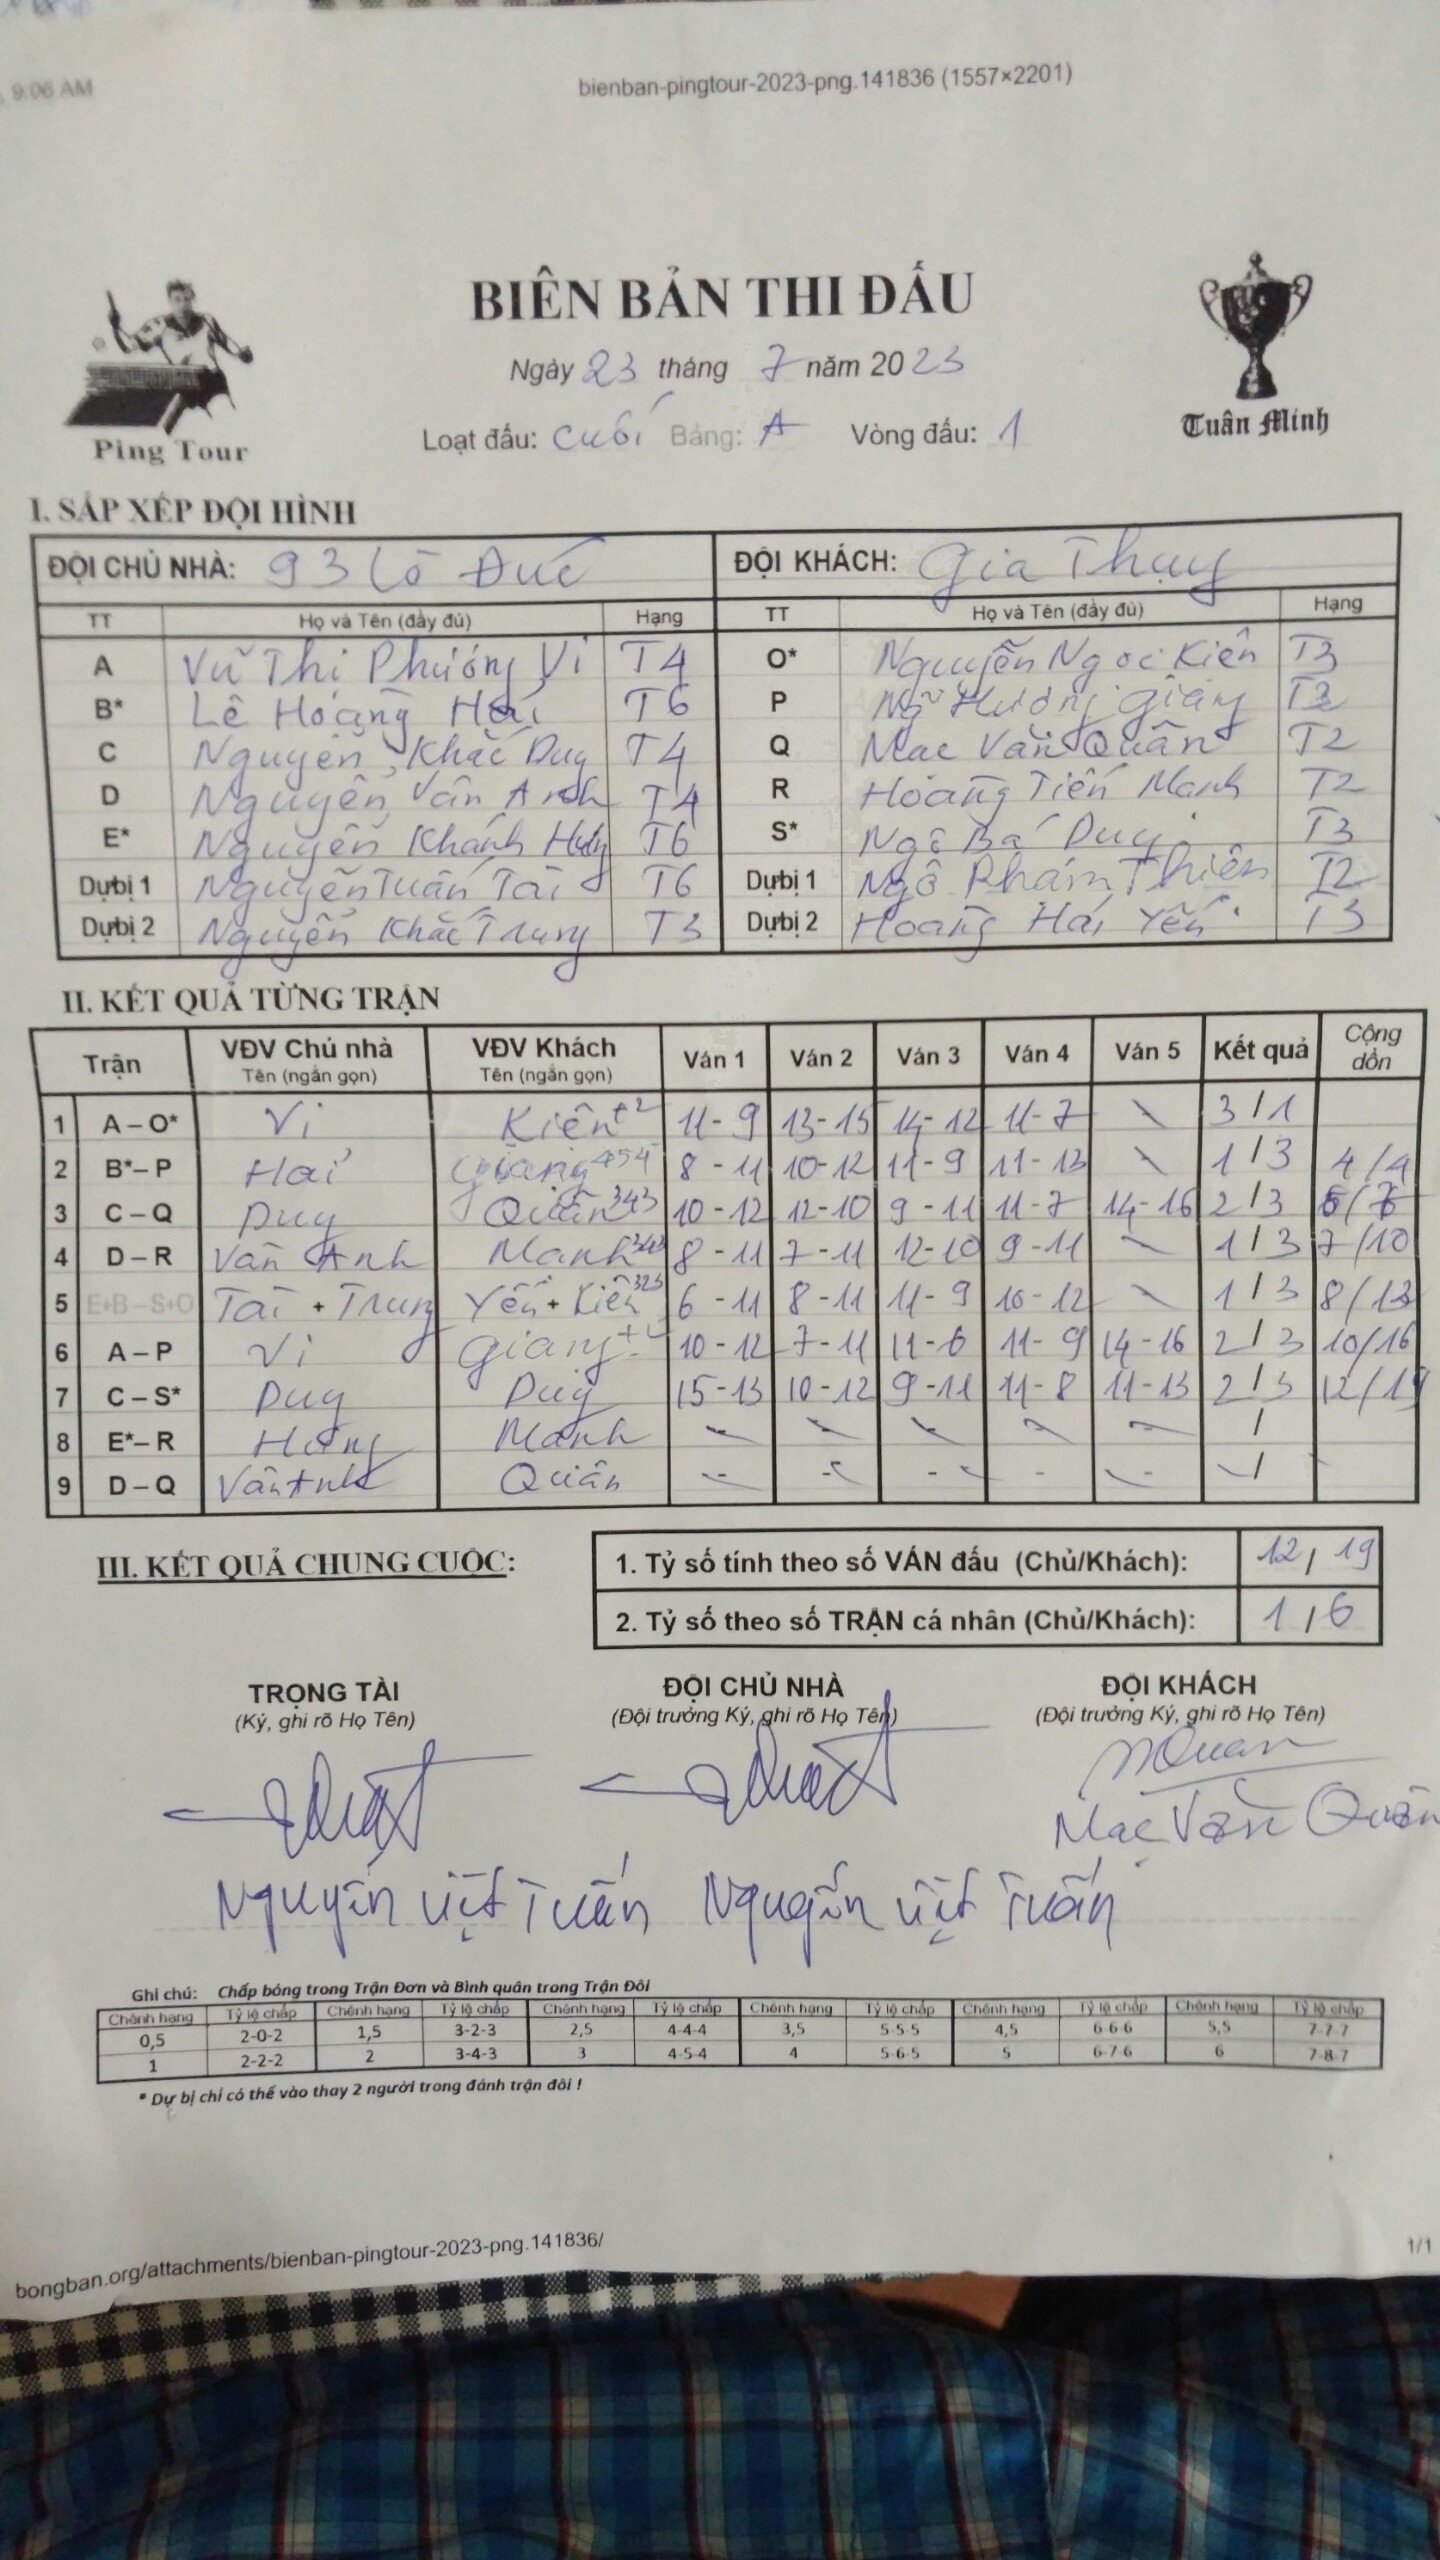 9:06 AM
bienban-pingtour-2023-png.141836 (1557×2201)
BIÊN BẢN THI ĐẤU
Ngày 23 tháng 7 năm 2023
Loạt đấu: cuối Bảng: A Vòng đấu: 1
Ping Tour
Tuấn Minh
I. SẮP XẾP ĐỘI HÌNH
ĐỘI CHỦ NHÀ: 93 Lò Đúc ĐỘI KHÁCH: Gia Thụy
TT Họ và Tên (đầy đủ) Hạng TT Họ và Tên (đầy đủ) Hạng
A Vũ Thị Phương Vi T4 O* Nguyễn Ngọc Kiên T3
B* Lê Hoàng Hải T6 P Hương Giang
C Nguyễn Khắc Duy T4 Q Mạc Văn Quân T2
D Nguyễn Vân Anh T4 R Hoàng Tiến Mạnh T2
E* Nguyễn Khánh T6 S* Ngô Bá Duy T3
Dự bị 1 Nguyễn Tuấn Tài T6 Dự bị 1 Ngô Phạm Thiên T2
Dự bị 2 Nguyễn Khắc Trung T3 Dự bị 2 Hoàng Hải Yến T3
II. KẾT QUẢ TỪNG TRẬN
Trận VĐV Chủ nhà VĐV Khách Ván 1 Ván 2 Ván 3 Ván 4 Ván 5 Kết quả Cộng dồn
Tên (ngắn gọn) Tên (ngắn gọn)
1 A – O* Vi Kiên +2 11-9 13-15 14-12 11-7 \ 3/1
2 B* – P Hải Giang 454 8-11 10-12 11-9 11-13 \ 1/3 4/4
3 C – Q Duy Quân 343 10-12 12-10 9-11 11-7 14-16 2/3 6/7
4 D – R Vân Anh Mạnh 343 8-11 7-11 12-10 9-11 \ 1/3 7/10
5 E+B – S+O Tài + Trung Yến + Kiên 323 6-11 8-11 11-9 10-12 \ 1/3 8/13
6 A – P Vi Giang 10-12 7-11 11-6 11-9 14-16 2/3 10/16
7 C – S* Duy Duy 15-13 10-12 9-11 11-8 11-13 2/3 12/19
8 E* – R Hưng Mạnh - - - - - /
9 D – Q Vân Anh Quân - - - - - /
III. KẾT QUẢ CHUNG CUỘC:
1. Tỷ số tính theo số VÁN đấu (Chủ/Khách): 12/19
2. Tỷ số theo số TRẬN cá nhân (Chủ/Khách): 1/6
TRỌNG TÀI ĐỘI CHỦ NHÀ ĐỘI KHÁCH
(Ký, ghi rõ Họ Tên) (Đội trưởng Ký, ghi rõ Họ Tên) (Đội trưởng Ký, ghi rõ Họ Tên)
MQuan
Mạc Văn Quân
Nguyễn Việt Tuấn Nguyễn Việt Tuấn
Ghi chú: Chấp bóng trong Trận Đơn và Bình quân trong Trận Đôi
Chênh hạng Tỷ lệ chấp Chênh hạng Tỷ lệ chấp Chênh hạng Tỷ lệ chấp Chênh hạng Tỷ lệ chấp Chênh hạng Tỷ lệ chấp Chênh hạng Tỷ lệ chấp
0,5 2-0-2 1,5 3-2-3 2,5 4-4-4 3,5 5-5-5 4,5 6-6-6 5,5 7-7-7
1 2-2-2 2 3-4-3 3 4-5-4 4 5-6-5 5 6-7-6 6 7-8-7
* Dự bị chỉ có thể vào thay 2 người trong đánh trận đôi !
bongban.org/attachments/bienban-pingtour-2023-png.141836/
1/1